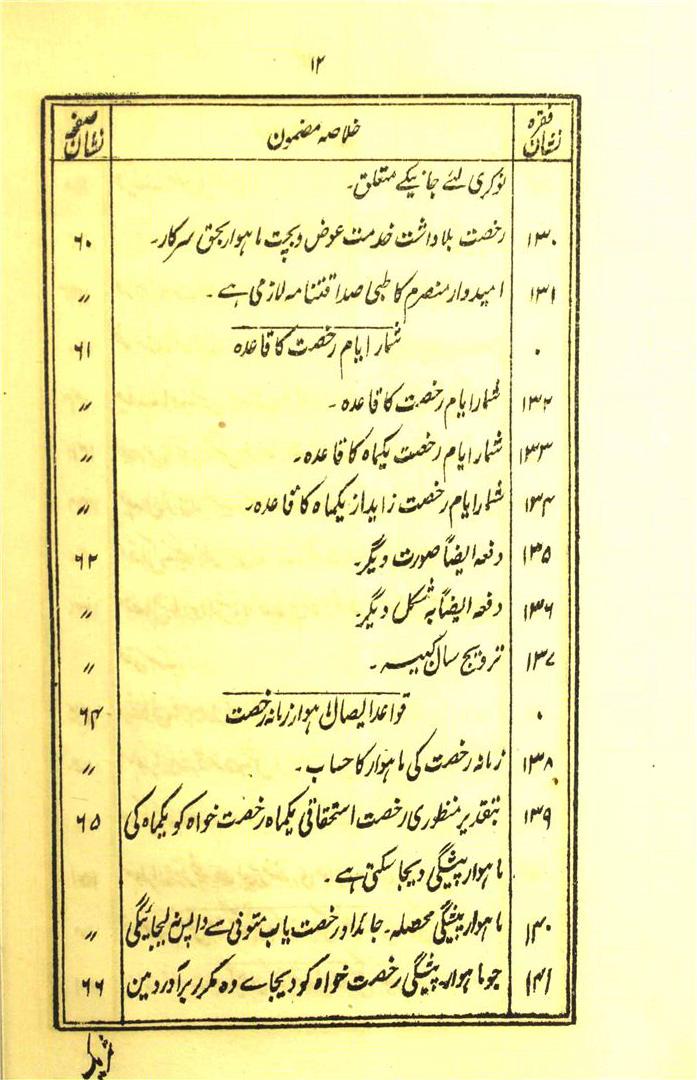 ۱۲
نشان فقرہ خلاصہ مضمون نشان صفحہ
نوکری لئے جانیکے متعلق۔
۱۳۰ رخصت بلاداشت خدمت عوض و بچت ماہوار بحق سرکار۔ ۶۰
۱۳۱ امیدوار منصرم کا طبی صداقتنامہ لازمی ہے۔ 〃
۰ شمار ایام رخصت کا قاعدہ ۶۱
۱۳۲ شمار ایام رخصت کا قاعدہ۔ 〃
۱۳۳ شمار ایام رخصت یکماہ کا قاعدہ۔ 〃
۱۳۴ شمار ایام رخصت زاید از یکماہ کا قاعدہ۔ 〃
۱۳۵ دفعہ ایضاً صورت دیگر۔ ۶۲
۱۳۶ دفعہ ایضاً بہ شکل دیگر۔ 〃
۱۳۷ ترویج سال کبیسہ۔ 〃
۰ قواعد ایصال ماہوار زمانہ رخصت ۶۴
۱۳۸ زمانہ رخصت کی ماہوار کا حساب۔ 〃
۱۳۹ بتقدیر منظوری رخصت استحقاقی یکماہ رخصت خواہ کو یکماہ کی ۶۵
ماہوار پیشگی دیجا سکتی ہے۔
۱۴۰ ماہوار پیشگی محصلہ۔ جائداد رخصت یاب متوفی سے واپس لیجائیگی 〃
۱۴۱ جو ماہوار پیشگی رخصت خواہ کو دیجاے وہ مکرر برآورد مین ۶۶